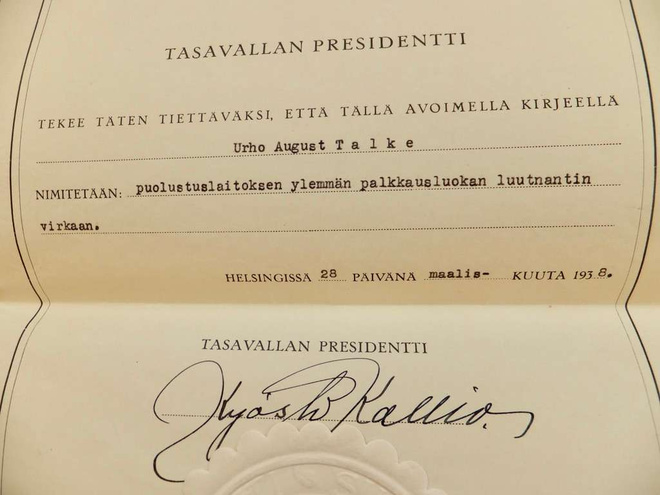 TASAVALLAN PRESIDENTTI
TEKEE TÄTEN TIETTÄVÄKSI, ETTÄ TÄLLÄ AVOIMELLA KIRJEELLÄ
Urho August Talke
NIMITETÄÄN: puolustuslaitoksen ylemmän palkkausluokan luutnantin
virkaan.
HELSINGISSÄ 28 PÄIVÄNÄ maalis- KUUTA 1938.
TASAVALLAN PRESIDENTTI
Kyösti Kallio.